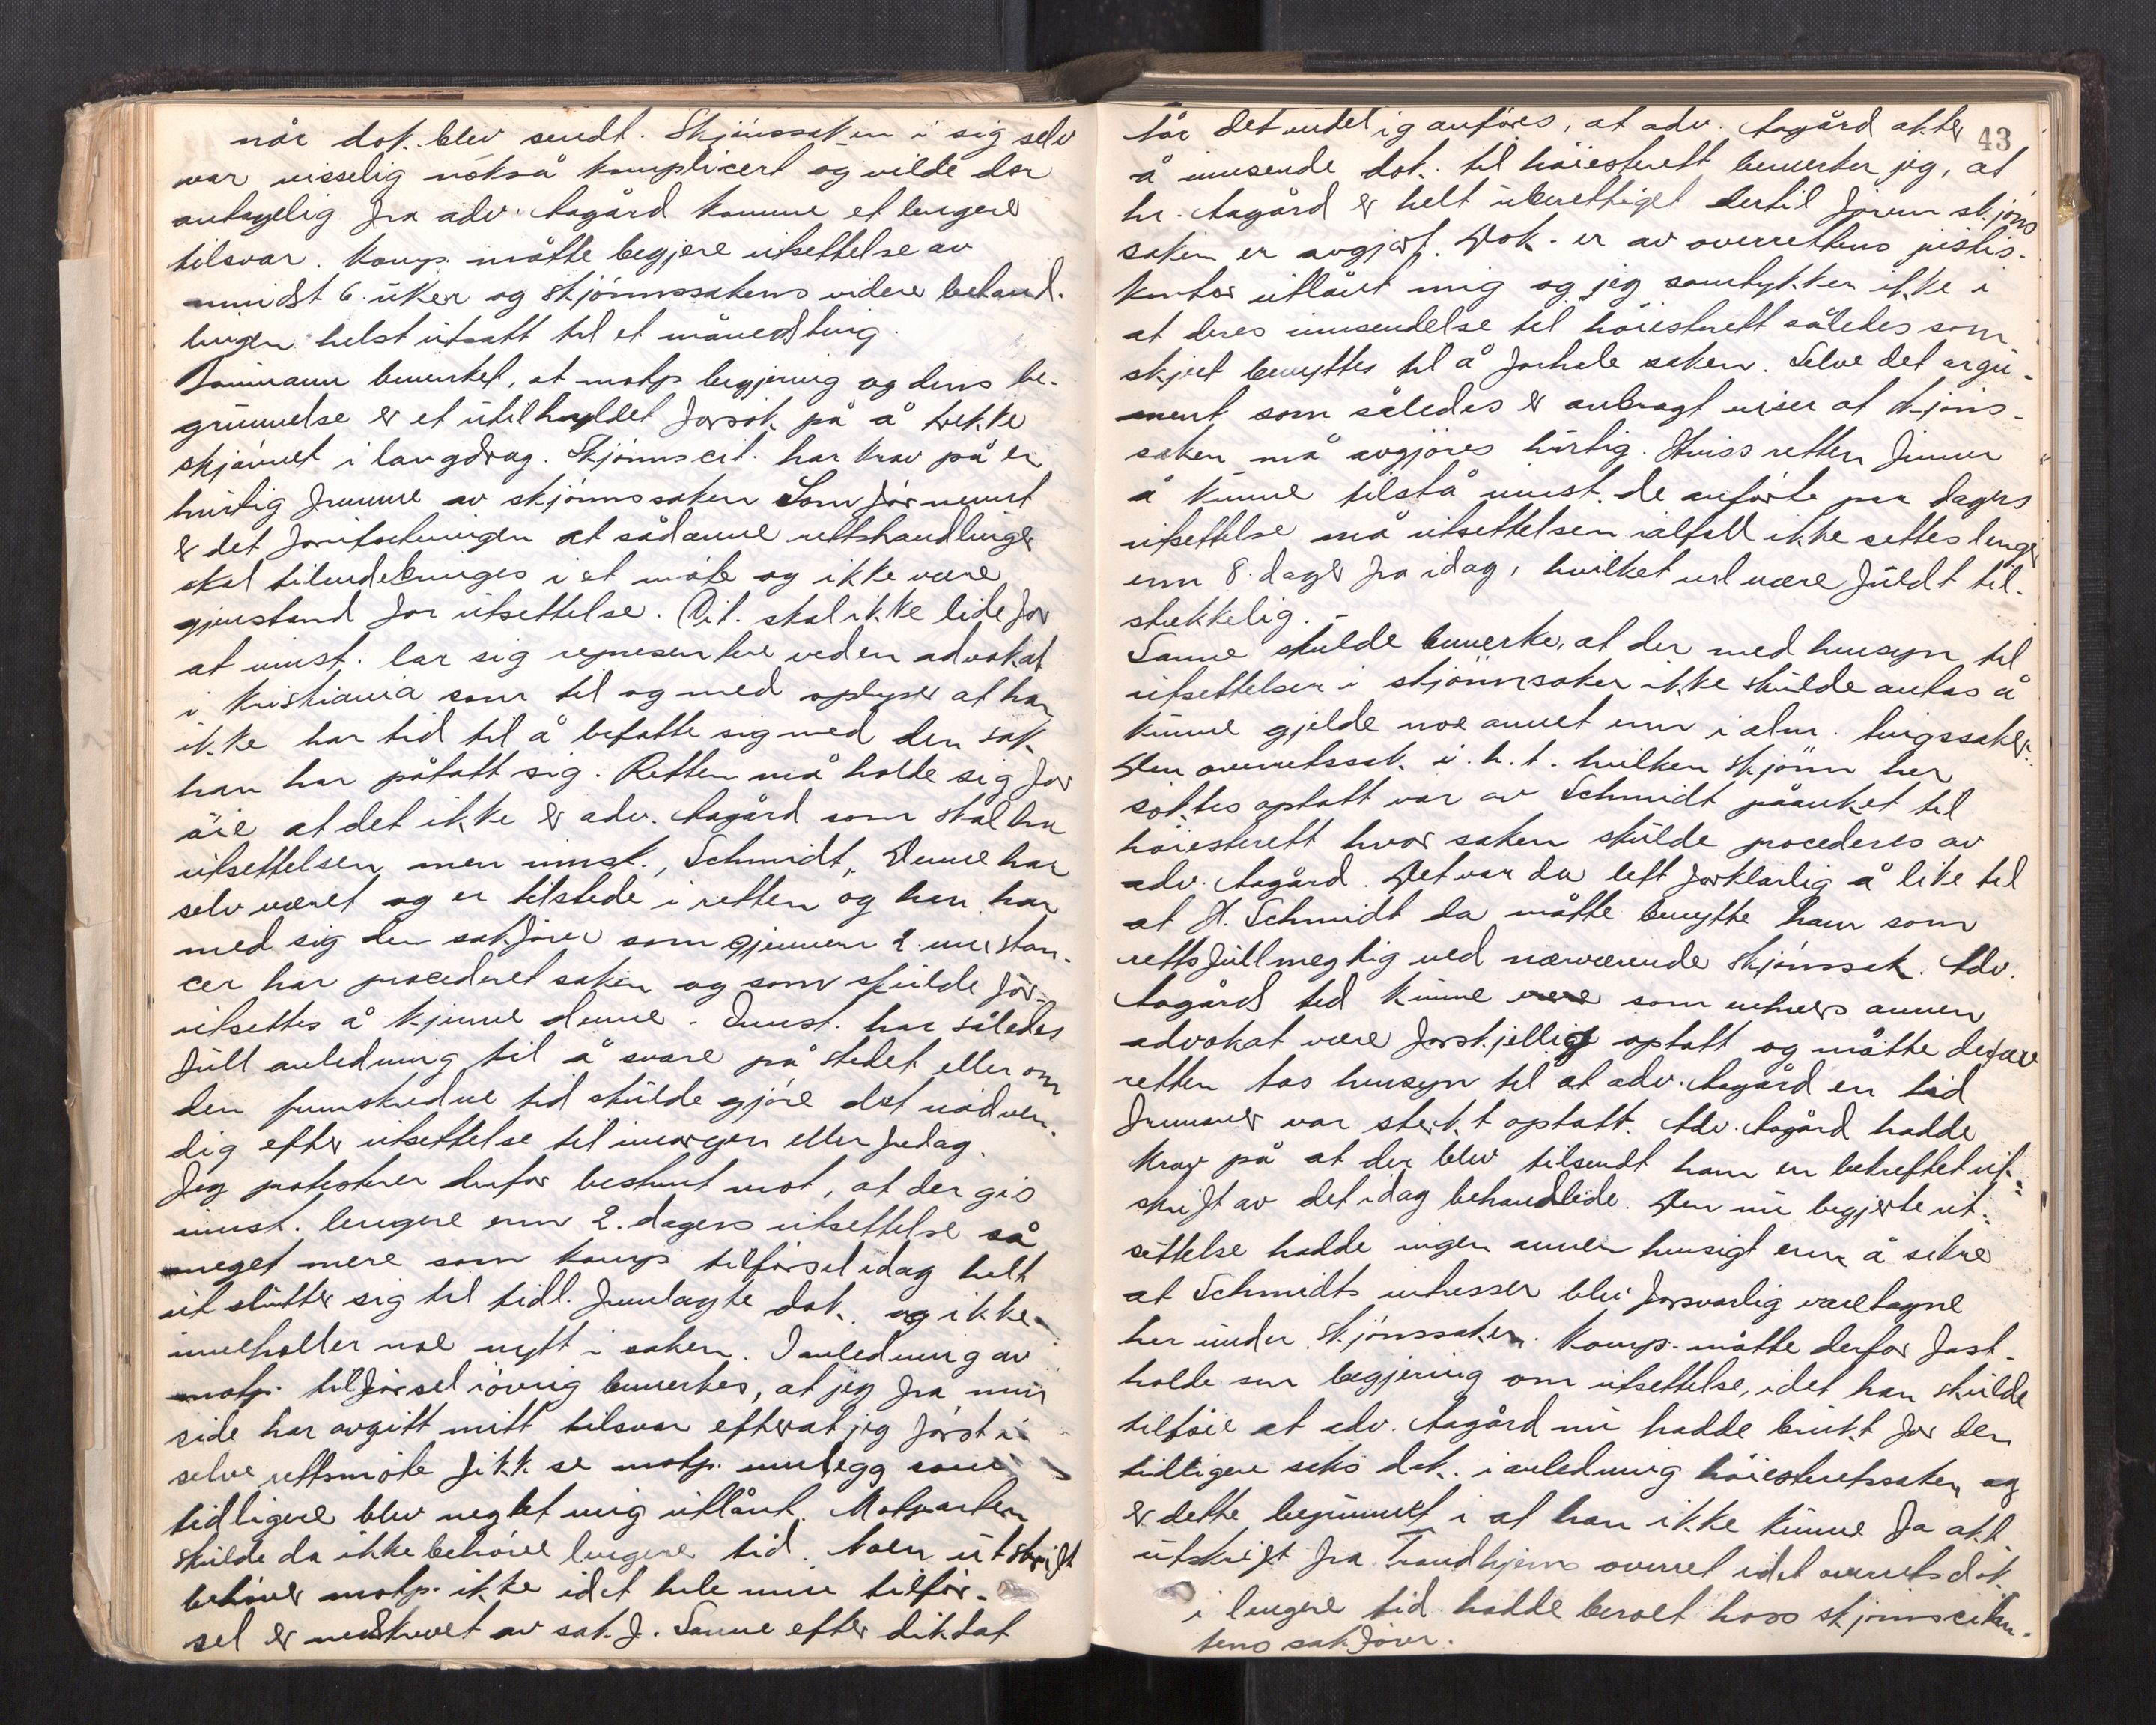 når dok. blev sendt. Skjönssaken i sig selv
var visselig nokså komplicert og vilde der
antagelig fra adv. Aagård komme et lengere
tilsvar. Komp. måtte begjere utsettelse av
minst 6 uker og skjönnssakens videre behand-
lingen helst utsatt til et månedsting.
bemerket, at motp. begjering og dens be-
grunnelse er et utilhyllet forsök på å trekke
skjönnet i langdrag. Skjönnscit. har krav på en
hurtig fremme av skjönnssaken. Som för nevnt
er det forutsetningen at sådanne rettshandlinger
skal tilendebringes i et möte og ikke være
gjenstand for utsettelse. Cit. skal ikke lide for
at innst. lar sig represen tere ved en advokat
i Kristiania som til og med oplyser at han
ikke har tid til å befatte sig med den sak
han har påtatt sig. Retten må holde sig for
öie at det ikke er adv. Aagård som skal ha
utsettelsen, men innst., Schmidt". Denne har
selv været og er tilstede i retten og han har
med sig den sakförer som gjennem 2 innstan-
cer har procederet saken og som skulde for-
utsettes å kjenne denne. Innst. har således
full anledning til å svare på stedet eller om
den fremskredne tid skulde gjöre det nödven-
dig efter utsettelse til imorgen eller fredag.
Jeg protesterer derfor bestemt mot, at der gis
innst. lengere enn 2. dagers utsettelse så
meget mere som komp. tilförsel idag helt
ut slutter sig til tidl. fremlagte dok. og ikke
inneholder noe nytt i saken. I anledning av
motp. tilförsel iövrig bemerkes, at jeg fra min
side har avgitt mitt tilsvar efterat jeg först i
selve rettsmöte fikk se motp. innlegg som
tidligere blev negtet mig utlånt. Motparten
skulde da ikke behöve lengere tid. Noen utskrift
behöver motp. ikke idet hele min tilför-
sel er nedskrevet av sakf. Sanne efter diktat
43
når det endelig anföres, at adv. Aagård akter
å innsende dok. til höiesterett bemerker jeg, at
hr. Aagård er helt uberettiget dertil förenn skjöns
saken er avgjort. Dok. er av overrettens justis-
kontor utlånt mig og jeg samtykker ikke i
at deres innsendelse til höiesterett således som
skjeet benyttes til å forhale saken. Selve det argu-
ment som således er anbragt viser at skjöns-
saken må avgjöres hurtig. Hviss retten finner
å kunne tilstå innst. de anförte par dagers
utsettelse må utsettelsen ialfall ikke settes lenger
enn 8. dager fra idag, hvilket vil være fuldt til-
strekkelig.
Sanne skulde bemerke, at der med hensyn til
utsettelsen i skjönnsaker ikke skulde antas å
kunne gjelde noe annet enn i alm. tingssaker.
Den overrettssak i. h. t. hvilken skjönn her
söktes optatt var av Schmidt påanket til
höiesterett hvor saken skulde procederes av
adv. Aagård. Det var da lett forklarlig å like til
at H. Schmidt da måtte benytte ham som
rettsfullmegtig ved nærværende skjönssak. Adv.
Aagårds tid kunne som enhver annen
advokat være forskjellig optatt og måtte derfore
retten tas hensyn til at adv. Aagård en tid
fremover var sterkt optatt. Adv. Aagård hadde
krav på at der blev tilsendt ham en bekreftet ut-
skrift av det idag behandlede. Den nu begjerte ut-
settelse hadde ingen annen hensigt enn å sikre
at Schmidts intresser blir forsvarlig varetagne
her under skjönssaken. Komp. måtte derfor fast-
holde sin begjering om utsettelse, idet han skulde
tilföie at adv. Aagård nu hadde brukt for den
tidligere saks dok. i anledning höiesterettssaken, og
er dette begrunnet i at han ikke kunne fa att
utskrift fra Trondhjems overret idet overrets dok.
i lengere tid hadde beroet hoss skjönscitan-
tens sakförer.